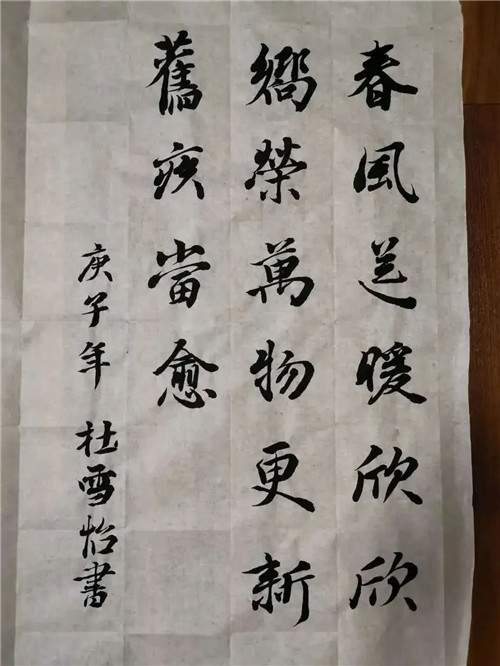 春風送暖欣欣
嚮榮萬物更新
舊疾當愈
庚子年 杜雪怡書